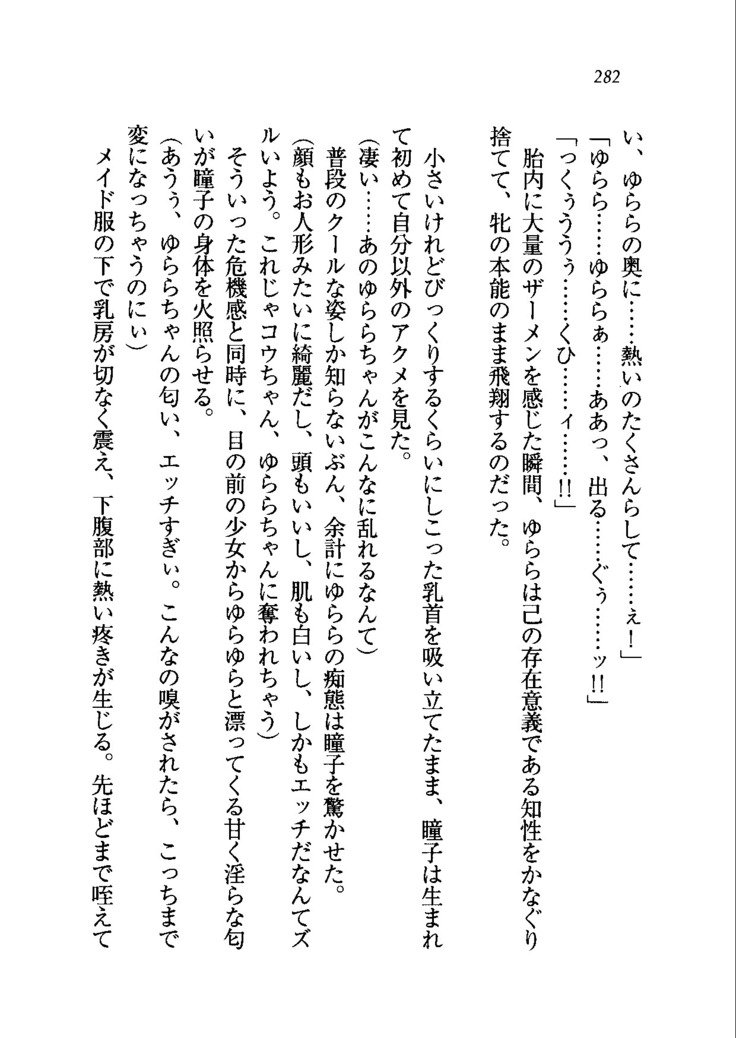 282
い、ゆららの奥に……熱いのたくさんらして……ぇ！」
「ゆらら……ゆららぁ……ああっ、出る……ぐぅ……ッ‼」
「っくぅううぅ……くひ……ィ……‼」
胎内に大量のザーメンを感じた瞬間、ゆららは己の存在意義である知性をかなぐり
捨てて、牝の本能のまま飛翔するのだった。
小さいけれどびっくりするくらいにしこった乳首を吸い立てたまま、瞳子は生まれ
て初めて自分以外のアクメを見た。
（凄い……あのゆららちゃんがこんなに乱れるなんて）
普段のクールな姿しか知らないぶん、余計にゆららの痴態は瞳子を驚かせた。
（顔もお人形みたいに綺麗だし、頭もいいし、肌も白いし、しかもエッチだなんてズ
ルいよう。これじゃコウちゃん、ゆららちゃんに奪われちゃう）
そういった危機感と同時に、目の前の少女からゆらゆらと漂ってくる甘く淫らな匂
いが瞳子の身体を火照らせる。
（あうぅ、ゆららちゃんの匂い、エッチすぎぃ。こんなの嗅がされたら、こっちまで
変になっちゃうのにぃ）
メイド服の下で乳房が切なく震え、下腹部に熱い疼きが生じる。先ほどまで咥えて